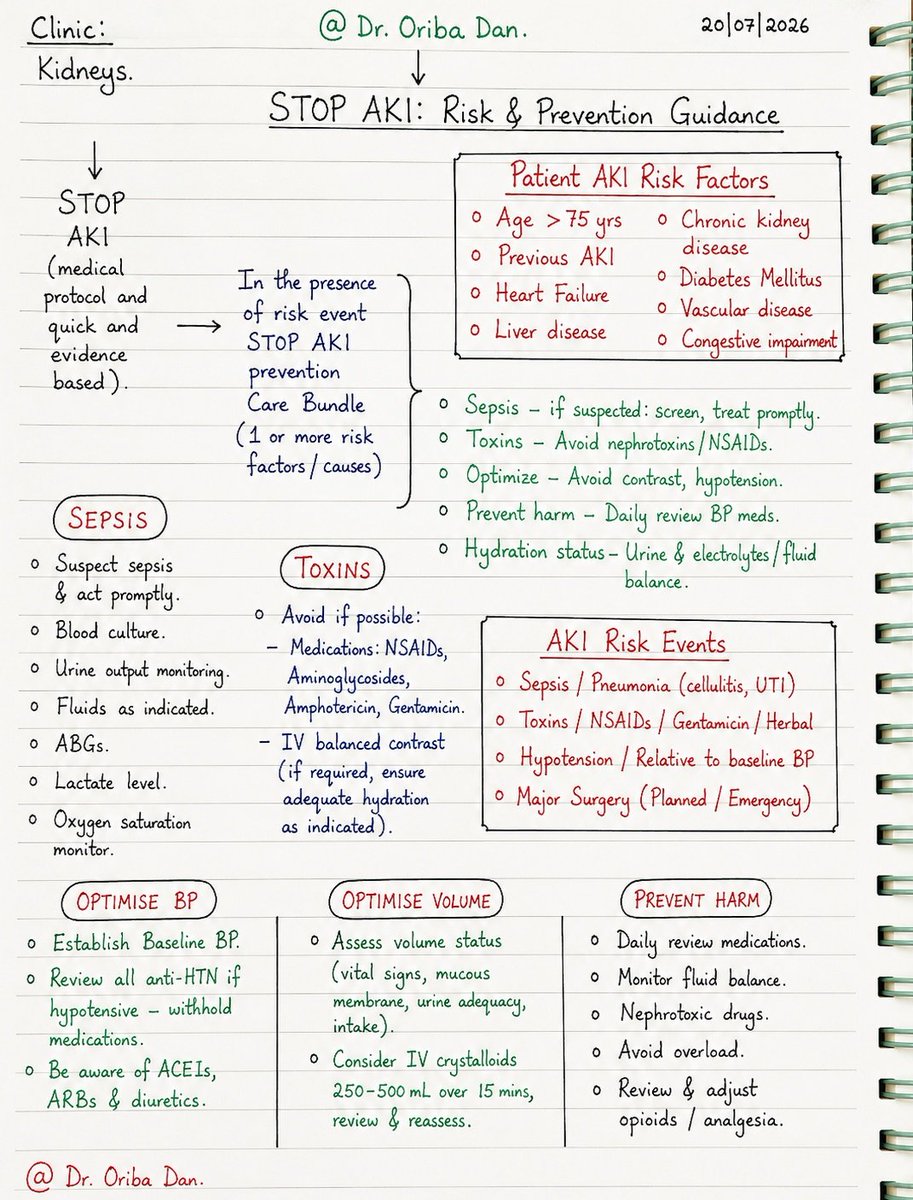 Clinic:
@ Dr. Oriba Dan.
20/07/2026
Kidneys.
STOP AKI: Risk & Prevention Guidance
STOP
AKI
(medical
protocol and
quick and
evidence
based).
In the presence
of risk event
STOP AKI
prevention
Care Bundle
(1 or more risk
factors/causes)
Patient AKI Risk Factors
Age > 75 yrs
Previous AKI
Heart Failure
Liver disease
Chronic kidney
disease
Diabetes Mellitus
Vascular disease
Congestive impairment
Sepsis – if suspected: screen, treat promptly.
Toxins – Avoid nephrotoxins/NSAIDs.
Optimize – Avoid contrast, hypotension.
Prevent harm – Daily review BP meds.
Hydration status – Urine & electrolytes/fluid
balance.
SEPSIS
Suspect sepsis
& act promptly.
Blood culture.
Urine output monitoring.
Fluids as indicated.
ABGs.
Lactate level.
Oxygen saturation
monitor.
TOXINS
Avoid if possible:
– Medications: NSAIDs,
Aminoglycosides,
Amphotericin, Gentamicin.
– IV balanced contrast
(if required, ensure
adequate hydration
as indicated).
AKI Risk Events
Sepsis / Pneumonia (cellulitis, UTI)
Toxins / NSAIDs / Gentamicin / Herbal
Hypotension / Relative to baseline BP
Major Surgery (Planned / Emergency)
OPTIMISE BP
Establish Baseline BP.
Review all anti-HTN if
hypotensive – withhold
medications.
Be aware of ACEIs,
ARBs & diuretics.
OPTIMISE VOLUME
Assess volume status
(vital signs, mucous
membrane, urine adequacy,
intake).
Consider IV crystalloids
250–500 mL over 15 mins,
review & reassess.
PREVENT HARM
Daily review medications.
Monitor fluid balance.
Nephrotoxic drugs.
Avoid overload.
Review & adjust
opioids / analgesia.
@ Dr. Oriba Dan.